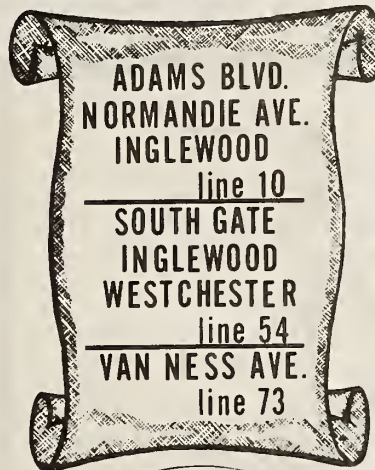 ADAMS BLVD.
NORMANDIE AVE.
INGLEWOOD
line 10
SOUTH GATE
INGLEWOOD
WESTCHESTER
line 54
VAN NESS AVE.
line 73